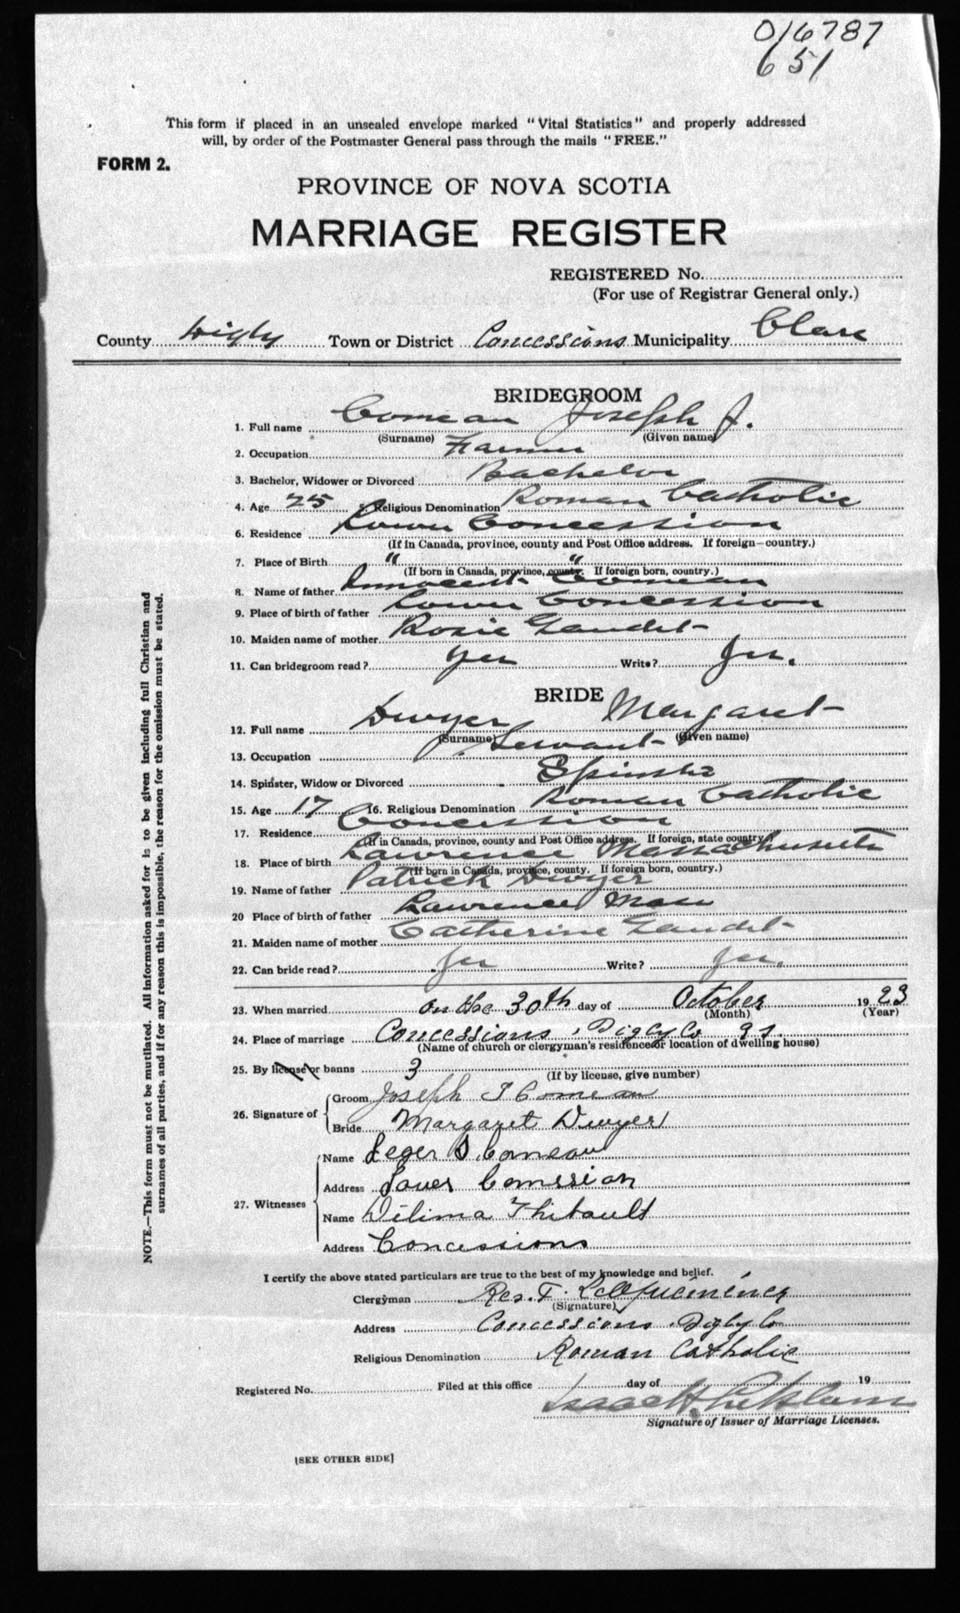 016787
651
This form if placed in an unsealed envelope marked "Vital Statistics" and properly addressed
will, by order of the Postmaster General pass through the mails "FREE."
FORM 2.
PROVINCE OF NOVA SCOTIA
MARRIAGE REGISTER
REGISTERED No.
(For use of Registrar General only.)
County Digby Town or District Concessions Municipality Clare
BRIDEGROOM
1. Full name Comeau Joseph J.
(Surname) (Given name)
2. Occupation Farmer
3. Bachelor, Widower or Divorced Bachelor
4. Age 25 5. Religious Denomination Roman Catholic
6. Residence Lower Concession
(If in Canada, province, county and Post Office address. If foreign—country.)
7. Place of Birth " "
(If born in Canada, province, county. If foreign born, country.)
8. Name of father Innocent Comeau
9. Place of birth of father Lower Concession
10. Maiden name of mother Rosie Gaudet
11. Can bridegroom read? Yes Write? Yes.
BRIDE
12. Full name Dwyer Margaret
(Surname) (Given name)
13. Occupation Servant
14. Spinster, Widow or Divorced Spinster
15. Age 17 16. Religious Denomination Roman Catholic
17. Residence Concession
(If in Canada, province, county and Post Office address. If foreign, state country.)
18. Place of birth Lawrence Massachusetts
(If born in Canada, province, county. If foreign born, country.)
19. Name of father Patrick Dwyer
20 Place of birth of father Lawrence Mass
21. Maiden name of mother Catherine Gaudet
22. Can bride read? Yes Write? Yes.
23. When married on the 30th day of October 1923
(Month) (Year)
24. Place of marriage Concessions, Digby Co
(Name of church or clergyman's residence or location of dwelling house)
25. By license or banns 3
(If by license, give number)
26. Signature of Groom Joseph J Comeau
Bride Margaret Dwyer
27. Witnesses Name Leger S. Comeau
Address Lower Comession
Name Vilima Thibault
Address Concessions
I certify the above stated particulars are true to the best of my knowledge and belief.
Clergyman Rev. F.
(Signature)
Address Concessions, Digby Co
Religious Denomination Roman Catholic
Registered No. Filed at this office day of 19
Isaac H.
Signature of Issuer of Marriage Licenses.
[SEE OTHER SIDE]
NOTE.—This form must not be mutilated. All information asked for is to be given including full Christian and
surnames of all parties, and if for any reason this is impossible, the reason for the omission must be stated.